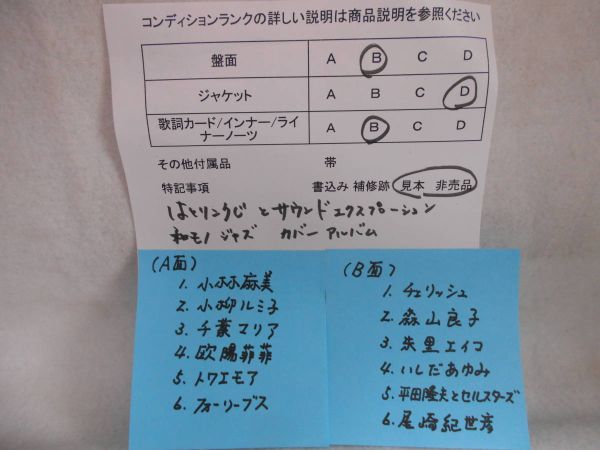 コンディションランクの詳しい説明は商品説明を参照ください
盤面 A B C D
ジャケット A B C D
歌詞カード/インナー/ライナーノーツ A B C D
その他付属品 帯
特記事項 書込み 補修跡 見本 非売品
はとりこうじ とサウンドエクスプローション
和モノ ジャズ カバー アルバム
(A面)
1. 小林麻美
2. 小柳ルミ子
3. 千葉マリア
4. 欧陽菲菲
5. トワエモア
6. フォーリーブス
(B面)
1. チェリッシュ
2. 森山良子
3. 朱里エイコ
4. いしだあゆみ
5. 平田隆夫とセルスターズ
6. 尾崎紀世彦